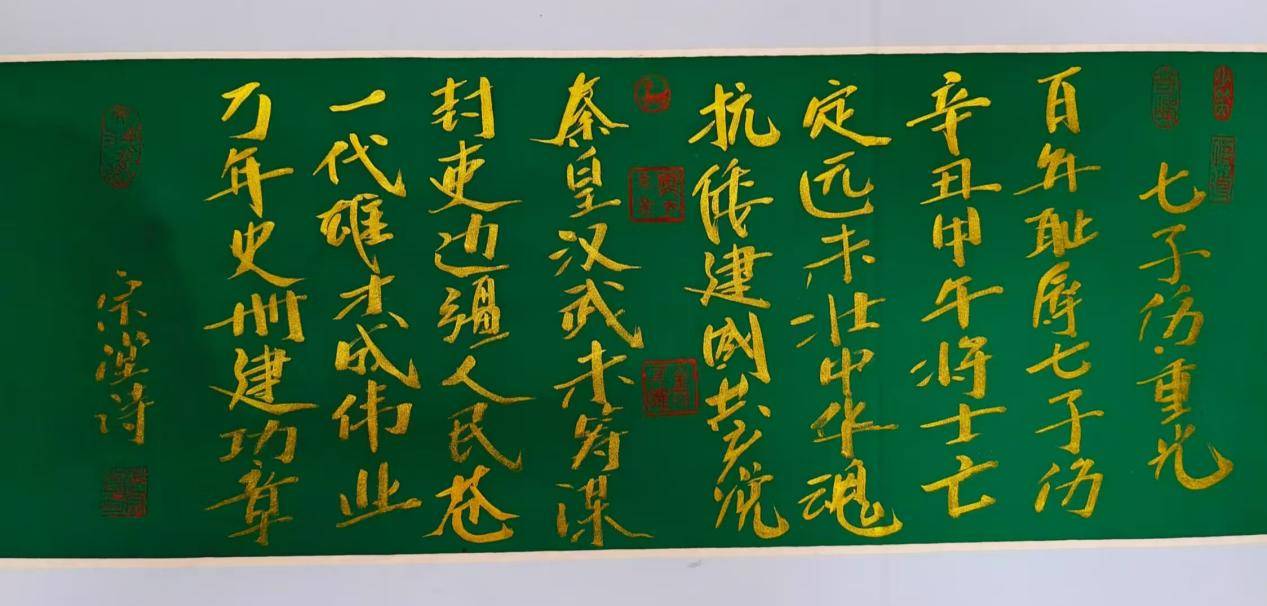 七子伤·重光
百年耻辱七子伤
辛丑甲午将士亡
定远未壮中华魂
抗倭建國共党
秦皇汉武未寄谋
封吏边疆人民苍
一代雄才成伟业
万年史册建功章
宗 诗